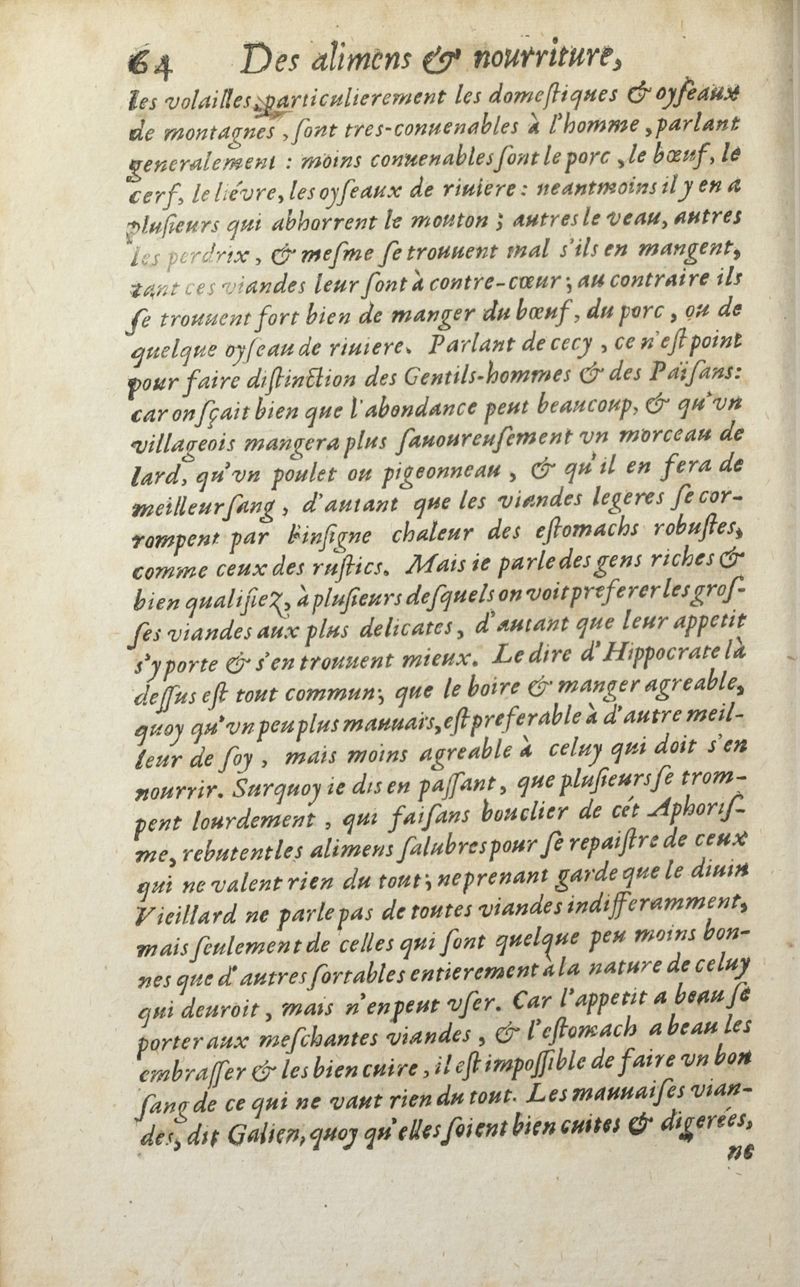 64 Des alimens & nourriture,
les volailles, particulierement les domeſtiques & oyſeaux
de montagnes, ſont tres-conuenables à l'homme, parlant
generalement : moins conuenables ſont le porc, le bœuf, le
cerf, le liévre, les oyſeaux de riuiere : neantmoins il y en a
pluſieurs qui abhorrent le mouton ; autres le veau, autres
les perdrix, & meſme ſe trouuent mal s'ils en mangent,
tant ces viandes leur ſont à contre-cœur ; au contraire ils
ſe trouuent fort bien de manger du bœuf, du porc, ou de
quelque oyſeau de riuiere. Parlant de cecy, ce n'eſt point
pour faire diſtinction des Gentils-hommes & des Païſans:
car on ſçait bien que l'abondance peut beaucoup, & qu'vn
villageois mangera plus ſauoureuſement vn morceau de
lard, qu'vn poulet ou pigeonneau, & qu'il en fera de
meilleur ſang, d'autant que les viandes legeres ſe cor-
rompent par l'inſigne chaleur des eſtomachs robuſtes,
comme ceux des ruſtics. Mais ie parle des gens riches &
bien qualifiez, à pluſieurs deſquels on voit preferer les groſ-
ſes viandes aux plus delicates, d'autant que leur appetit
s'y porte & s'en trouuent mieux. Le dire d'Hippocrate là
deſſus eſt tout commun; que le boire & manger agreable,
quoy qu'vn peu plus mauuais, eſt preferable à d'autre meil-
leur de ſoy, mais moins agreable à celuy qui doit s'en
nourrir. Surquoy ie dis en paſſant, que pluſieurs ſe trom-
pent lourdement, qui faiſans bouclier de cét Aphoriſ-
me, rebutent les alimens ſalubres pour ſe repaiſtre de ceux
qui ne valent rien du tout; ne prenant garde que le diuin
Vieillard ne parle pas de toutes viandes indifferamment,
mais ſeulement de celles qui ſont quelque peu moins bon-
nes que d'autres ſortables entierement à la nature de celuy
qui deuroit, mais n'en peut vſer. Car l'appetit a beau ſe
porter aux meſchantes viandes, & l'eſtomach a beau les
embraſſer & les bien cuire, il eſt impoſſible de faire vn bon
ſang de ce qui ne vaut rien du tout. Les mauuaiſes vian-
des, dit Galien, quoy qu'elles ſoient bien cuites & digerées,
ne